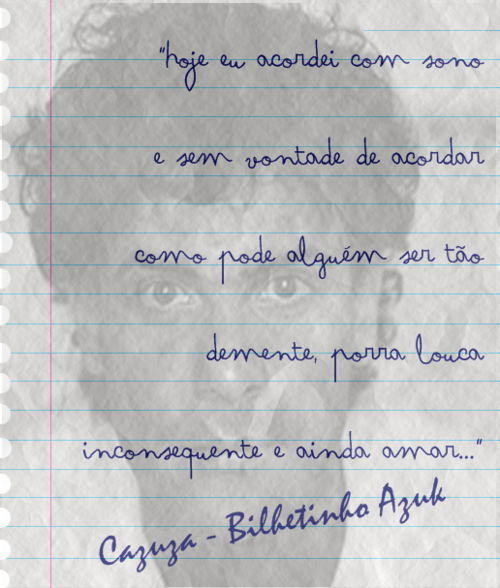 "hoje eu acordei com sono
e sem vontade de acordar
como pode alguém ser tão
demente, porra louca
inconsequente e ainda amar..."
Cazuza - Bilhetinho Azuk